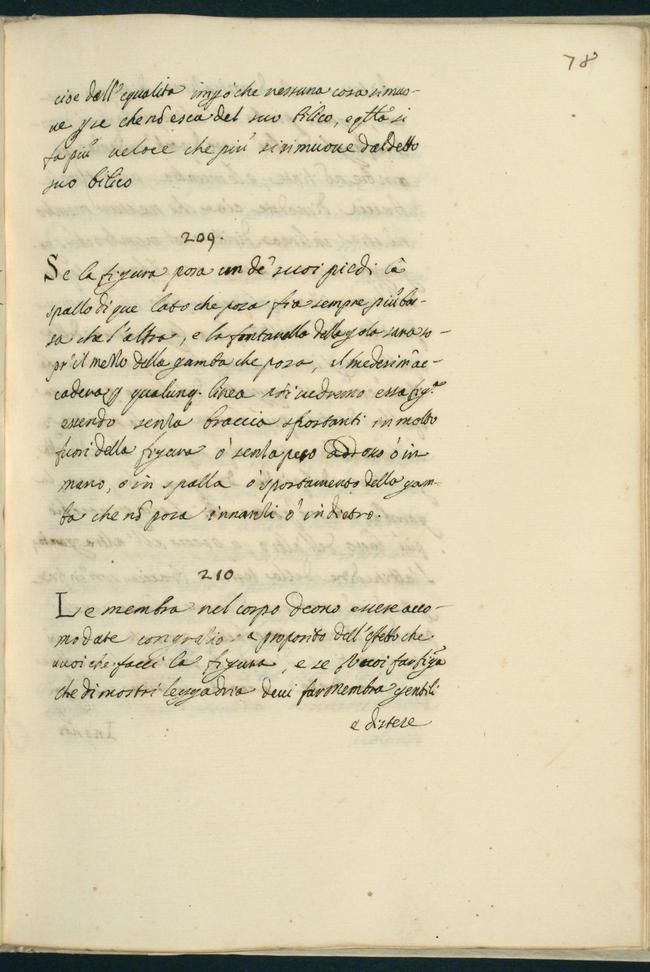 78
cioe dell'equalita impo che nessuna cosa si muo-
ve p se che nõ esca del suo bilico, e qlla si
fa piu veloce che piu si rimuove dal detto
suo bilico
209.
Se la figura posa un de' suoi piedi la
spalla di que lato che posa fia sempre piu bas-
sa che l'altra, e la fontanella della gola sara so-
pr' il mezzo della gamba che posa, il medesim ac-
cadera p qualunq. linea noi vedremo essa fig.ª
essendo senza braccia sportanti in molto
fuori della figura o' senza peso addosso o in
mano, o in spalla o' sportamento della gam-
ba che nõ posa innanzi o' indietro.
210
Le membra nel corpo deono essere acco-
modate con gratio a proposito dell'effetto che
vuoi che facci la figura, e se vuoi far figª
che dimostri leggadria devi far membra gentili
e distese